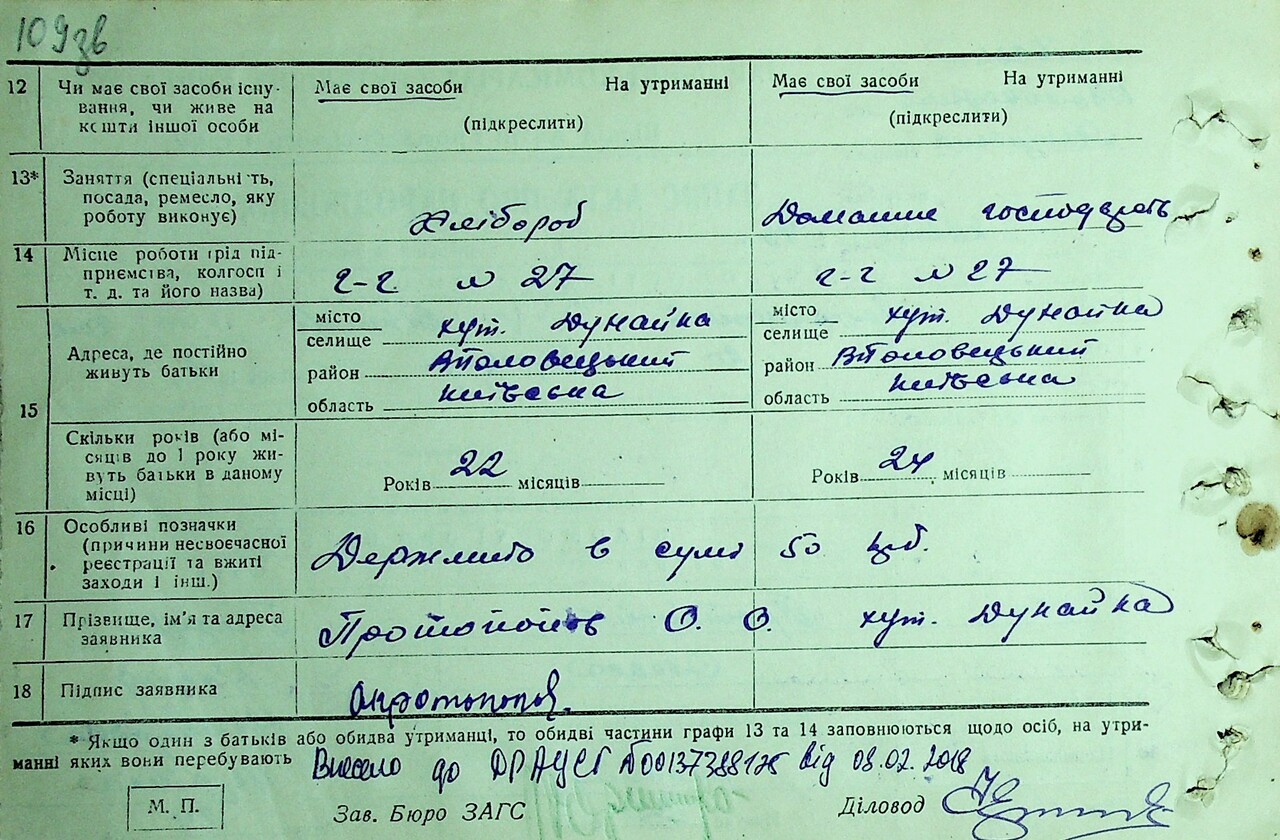 109зв
12 Чи має свої засоби існу- Має свої засоби На утриманні Має свої засоби На утриманні
вання, чи живе на
кошти іншої особи (підкреслити) (підкреслити)
13* Заняття (спеціальність,
посада, ремесло, яку
роботу виконує) Хлібороб Домашнє господарств
14 Місце роботи (рід під-
приємства, колгосп і
т. д. та його назва) г-г. № 27 г-г № 27
15 Адреса, де постійно живуть батьки
місто селище хут. Дунайка місто селище хут. Дунайка
район район
область Київська область Київська
Скільки років (або мі-
сяців до 1 року жи-
вуть батьки в даному
місці) Років 22 місяців Років 24 місяців
16 Особливі позначки
(причини несвоєчасної
реєстрації та вжиті
заходи і інш.) Держмито в сумі 50 крб.
17 Прізвище, ім'я та адреса
заявника Протопопов О. О. хут. Дунайка
18 Підпис заявника
* Якщо один з батьків або обидва утриманці, то обидві частини графи 13 та 14 заповнюються щодо осіб, на утри-
манні яких вони перебувають Внесено до ДРАЦСГ №00137388128 від 08.02.2018
М. П. Зав. Бюро ЗАГС Діловод